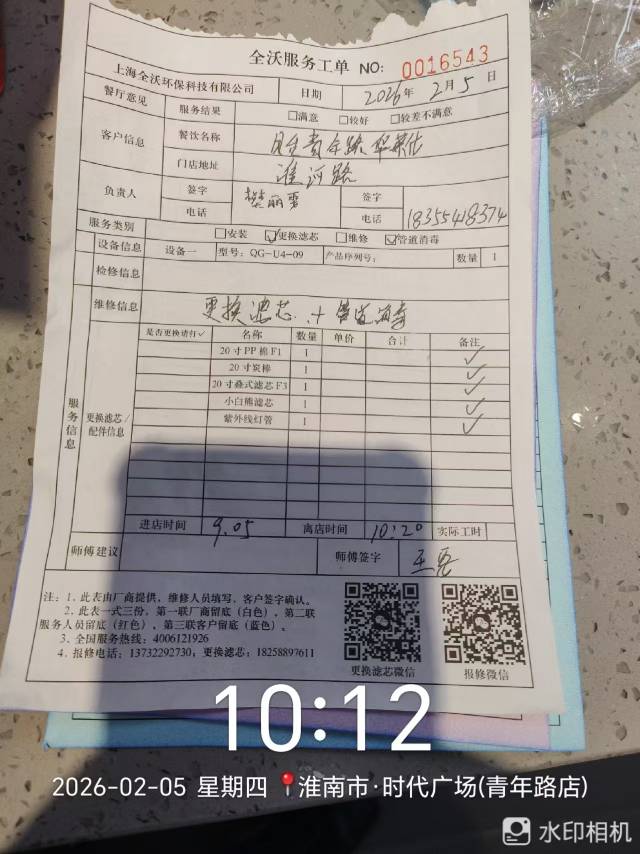 全沃服务工单 NO: 0016543
上海全沃环保科技有限公司 日期 2026年 2月 5日
餐厅意见 服务结果 □满意 □较好 □较差不满意
客户信息 餐饮名称 青年路 华莱仕
门店地址 淮河路
负责人 签字 樊丽雪 签字
电话 电话 18355418374
服务类别 □安装 ☑更换滤芯 □维修 ☑管道消毒
设备信息 设备一 型号: QG-U4-09 产品序列号: 数量 1
检修信息
维修信息 更换滤芯 + 管道消毒
是否更换请打✓ 名称 数量 单价 合计 备注
20寸PP棉F1 1 ✓
20寸炭棒 1 ✓
20寸叠式滤芯F3 1 ✓
小白熊滤芯 1 ✓
紫外线灯管 1 ✓
服务信息 更换滤芯/配件信息
进店时间 9.05 离店时间 10:20 实际工时
师傅建议 师傅签字 王
注: 1. 此表由厂商提供, 维修人员填写, 客户签字确认。
2. 此表一式三份, 第一联厂商留底(白色), 第二联
服务人员留底(红色), 第三联客户留底(蓝色)。
3. 全国服务热线: 4006121926
4. 报修电话: 13732292730; 更换滤芯: 18258897611
更换滤芯微信 报修微信
10:12
2026-02-05 星期四 淮南市·时代广场(青年路店)
水印相机